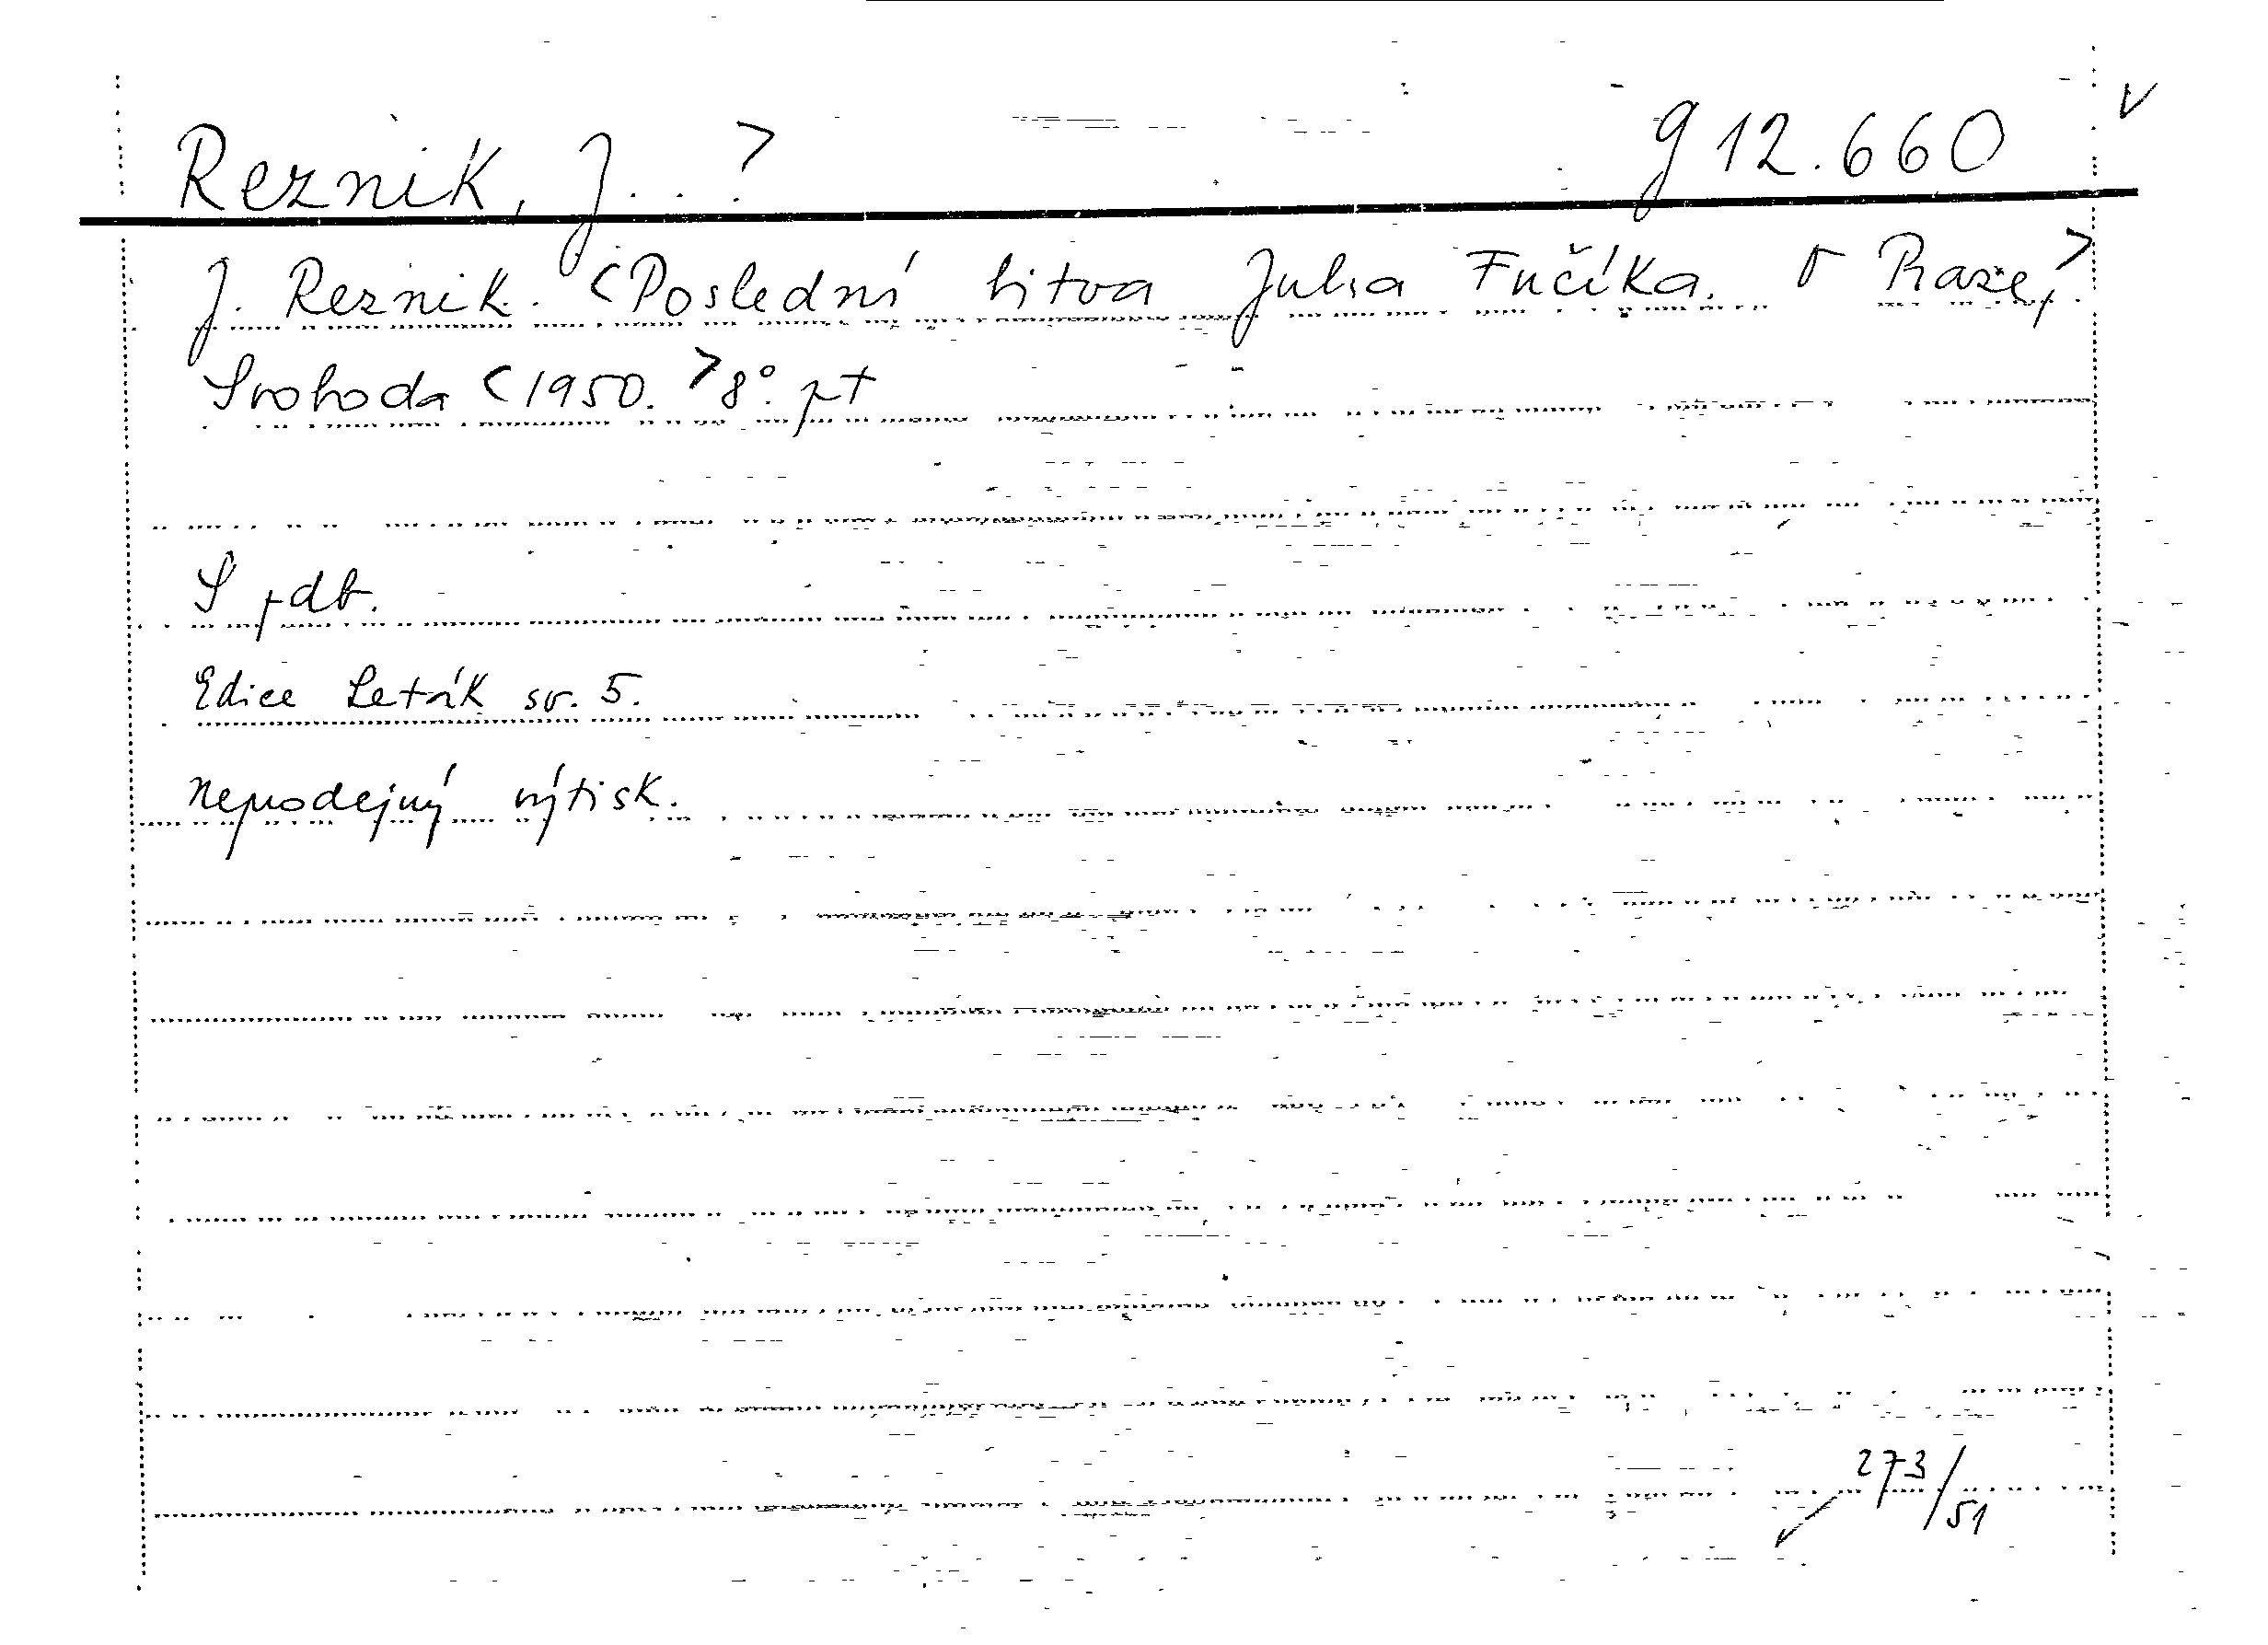 Reznik, J. . ? g 12.660 v
J. Reznik. <Poslední bitva Julia Fučíka. V Praze,>
Svoboda <1950.> 8°.
S
Edice Leták sv. 5.
neprodejný výtisk.
273/51